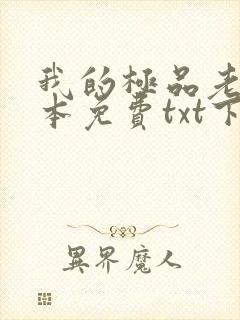 我的極品老
本免費txt下
異界魔人